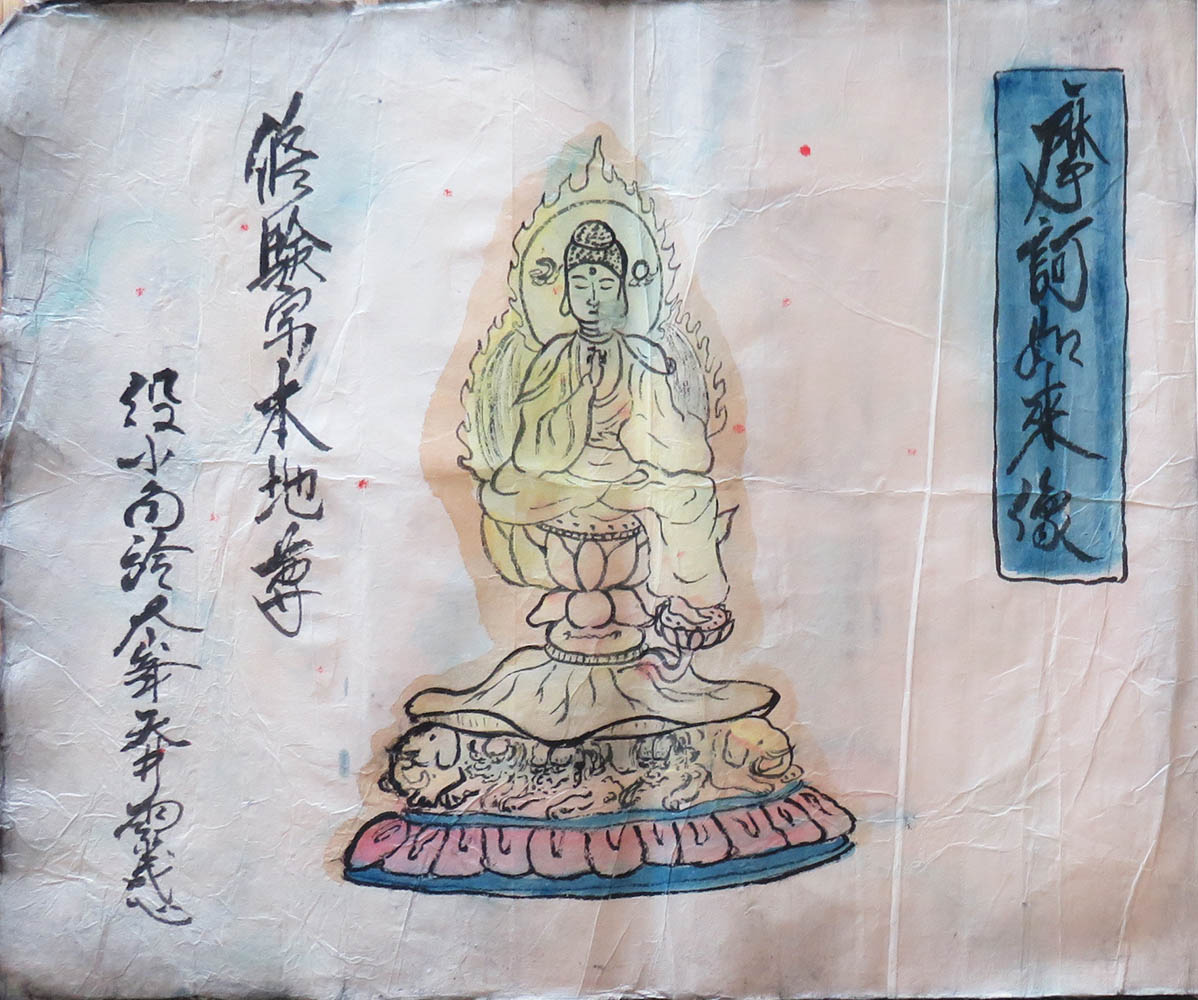 摩訶如來像
修験宗本地尊
役小角於大峯